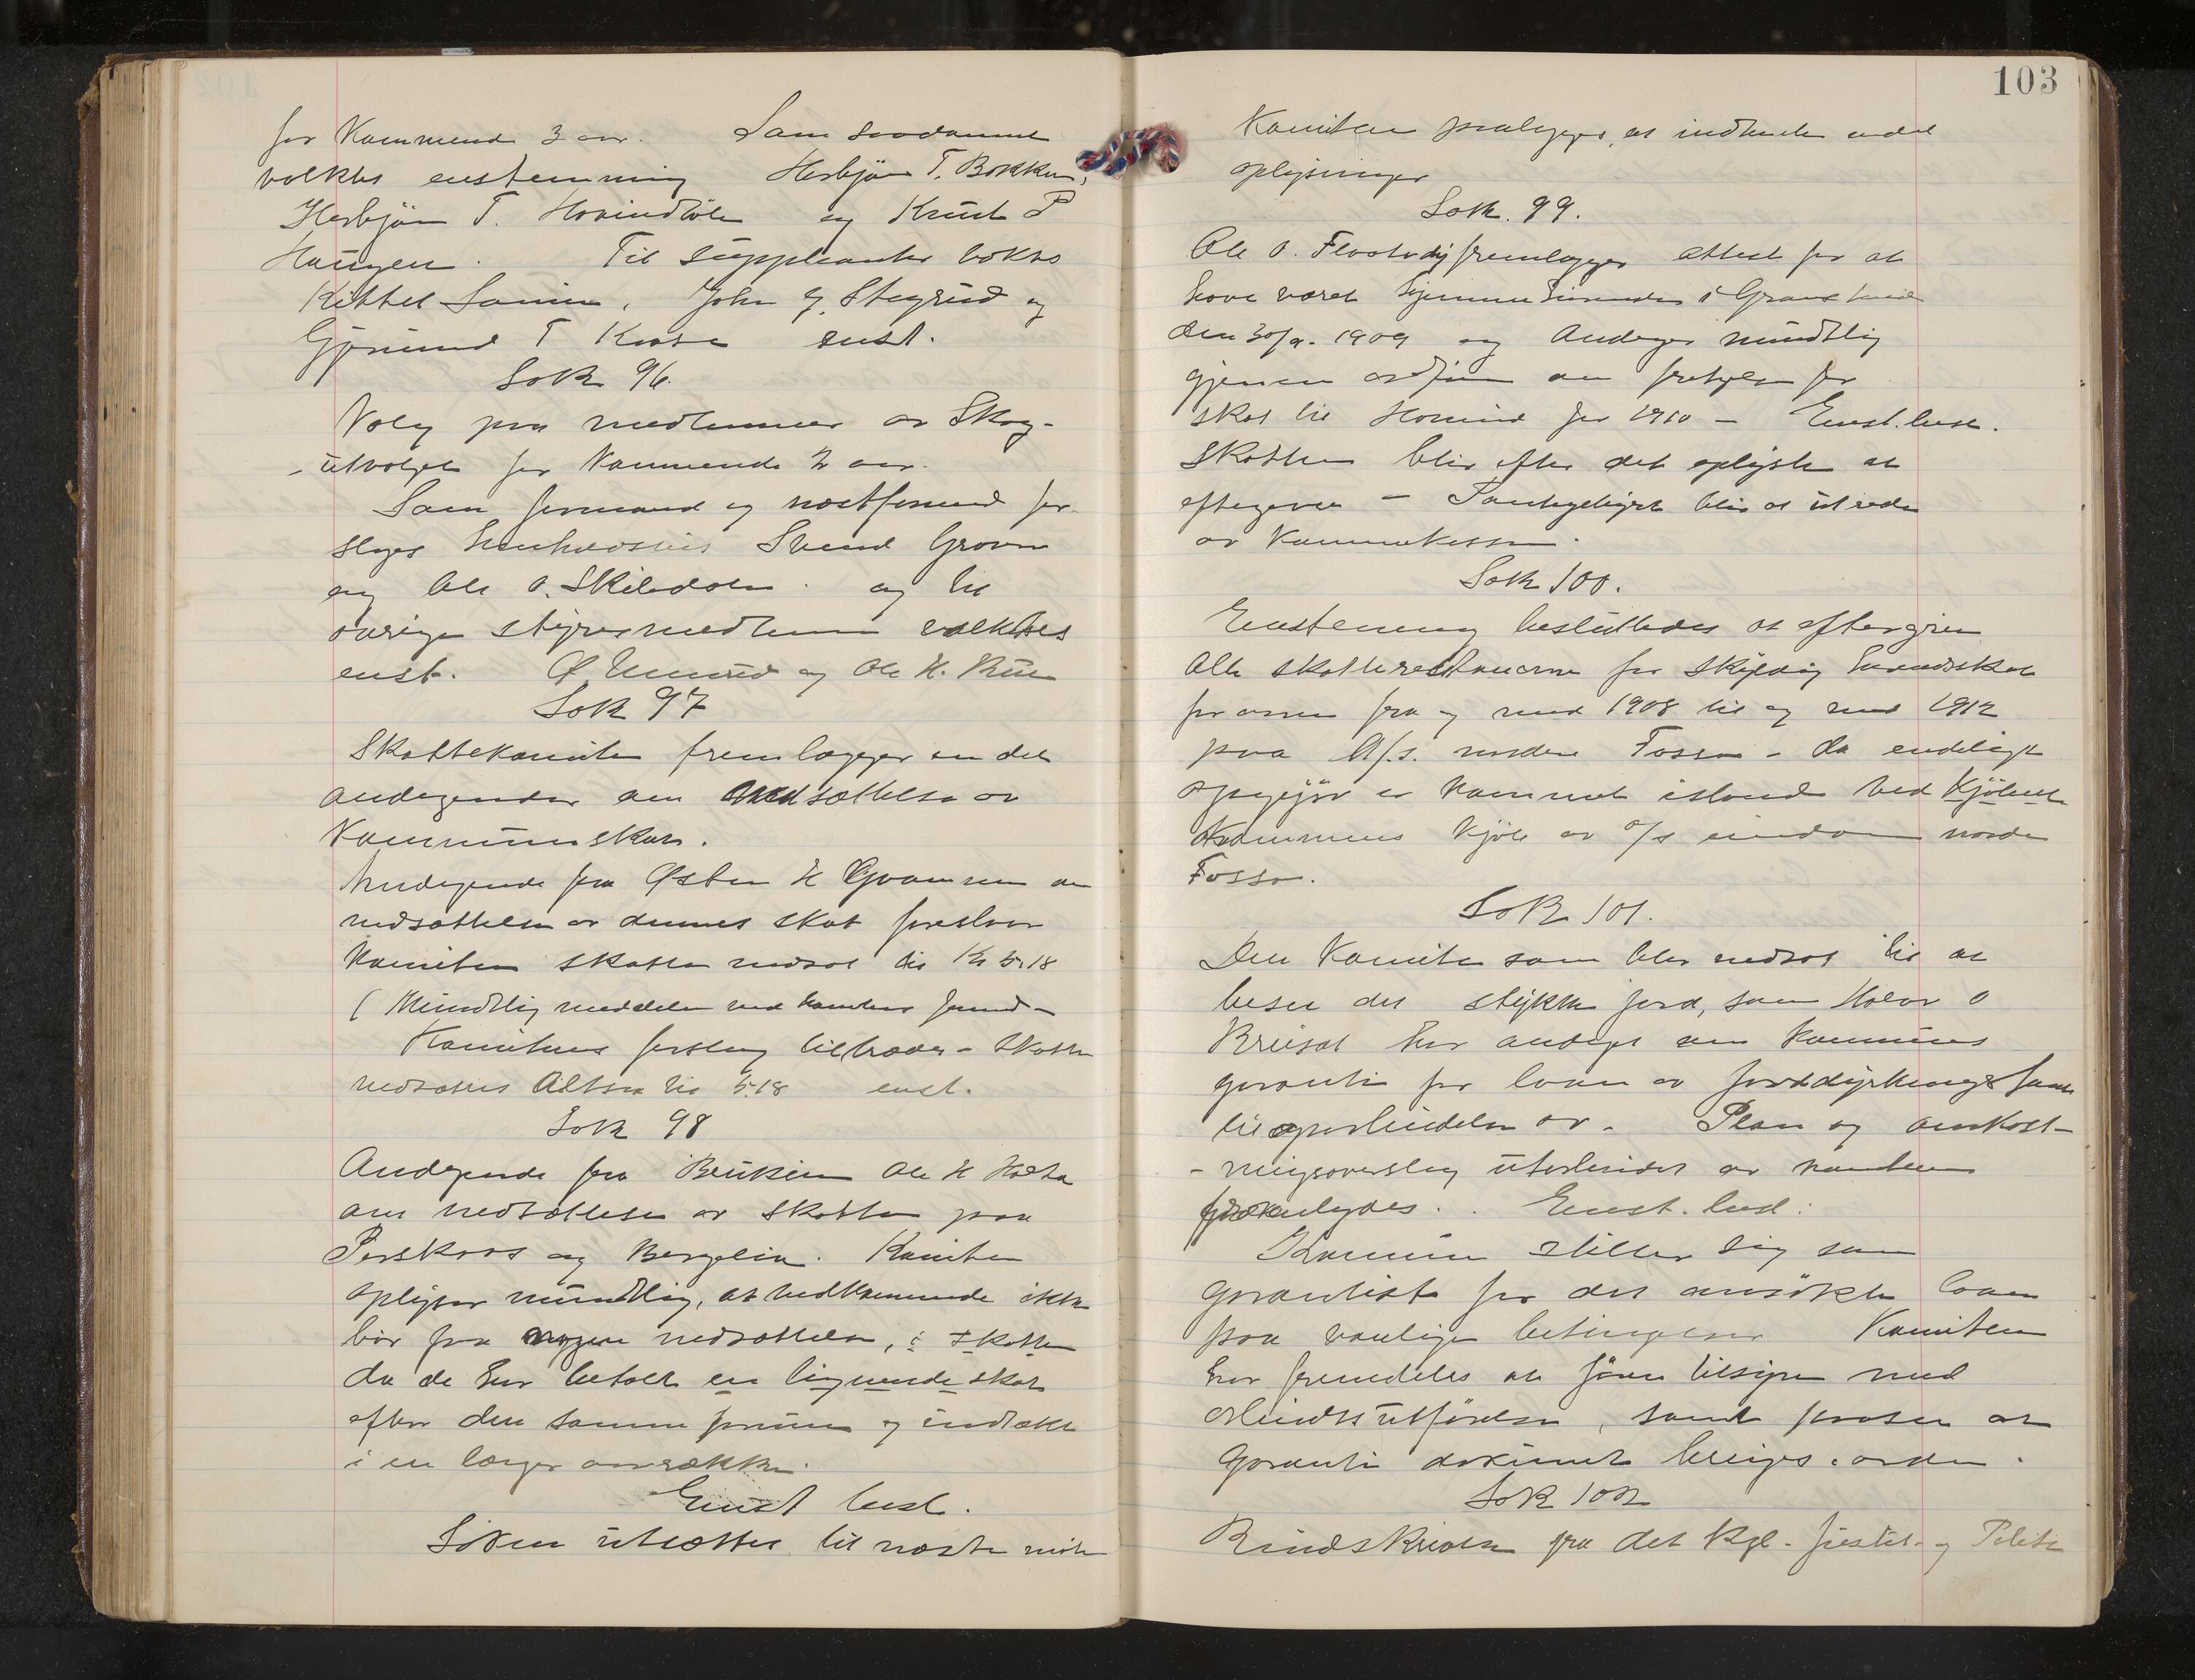 for kommende 3 aar. Som saadanne
valktes enstemmig Herbjørn T. Bakken,
Herbjørn T. Hovindbøle og Knut P
Haugen. Til suppleanter valktes
Kittel Samin, John G. Stegrud og
Gjermund T Kaasa enst.
Sak 96.
Valg paa medlemmer av Skog-
-utvalget for kommende 2 aar.
Som formand og næstformand for
slages Svend Grovu
og Ole O. Skeiedalen og til
øvrige styresmedlemmer valktes
enst. Ø. og Ole H.
Sak 97
Skattekomiten fremlægger en del
andragender om nedsættelse av
kommuneskat.
Andragende fra Østen H om
nedsættelse av dennes skat foreslaar
Komiten skatten nedsat til Kr 5.18
(Mundtlig meddelt ved komitens formand-
Komitens forslag tiltrædes - Skatten
nedsættes altsaa til 5.18 enst.
Sak 98
Andragende fra Ole H Holta
om nedsættelse av skatten paa
og Bergelia. Komiten
oplyser mundtlig, at vedkommende ikke
bør faa nogen nedsættelse, i skatten
da de har betalt en lignende skat
efter den samme formue og indtækt
i en længer aarrække.
Enst besl.
Saken utsættes til næste møte
103
Komiten paalægges, at indhente endel
oplysninger
Sak. 99.
Ole O. fremlægger attest for at
have været hjemmehørende i
den 30/9. 1909 og andrager mundtlig
gjennem ordføren om fritagelse for
skat til Hovind for 1910 - Enst. besl.
Skatten blir efter det oplyste at
eftergives - blir at utrede
av kommunekassen.
Sak 100.
Enstemmig besluttedes at eftergives
alle skatterestancerne for skyldig herredsskat
for aarene fra og med 1908 til og med 1912
paa A/S. nordre Fosso - da endeligt
opgjør er kommet istand ved Kjøbet
Kommunens kjøb av A/S eiendom nordre
Fosso.
Sak 101.
Den Komite som blev nedsat til at
bese det stykke jord, som Halvor O
har andraget om kommunens
garanti for laan av jorddyrkningsfond
til oparbeidelse av. Plan og omkost-
-ningsoverslag utarbeidet av komiteen
fremlagdes. Enst. besl:
Kommunen stiller sig som
garantist for det ansøkte laan
paa vanlige betingelser Komiten
har fremdeles at føre tilsyn med
arbeidets utførelse, samt paase at
garanti dokument bringes i orden.
Sak 102
Rundskrivelse fra det kgl. justis- og Politi